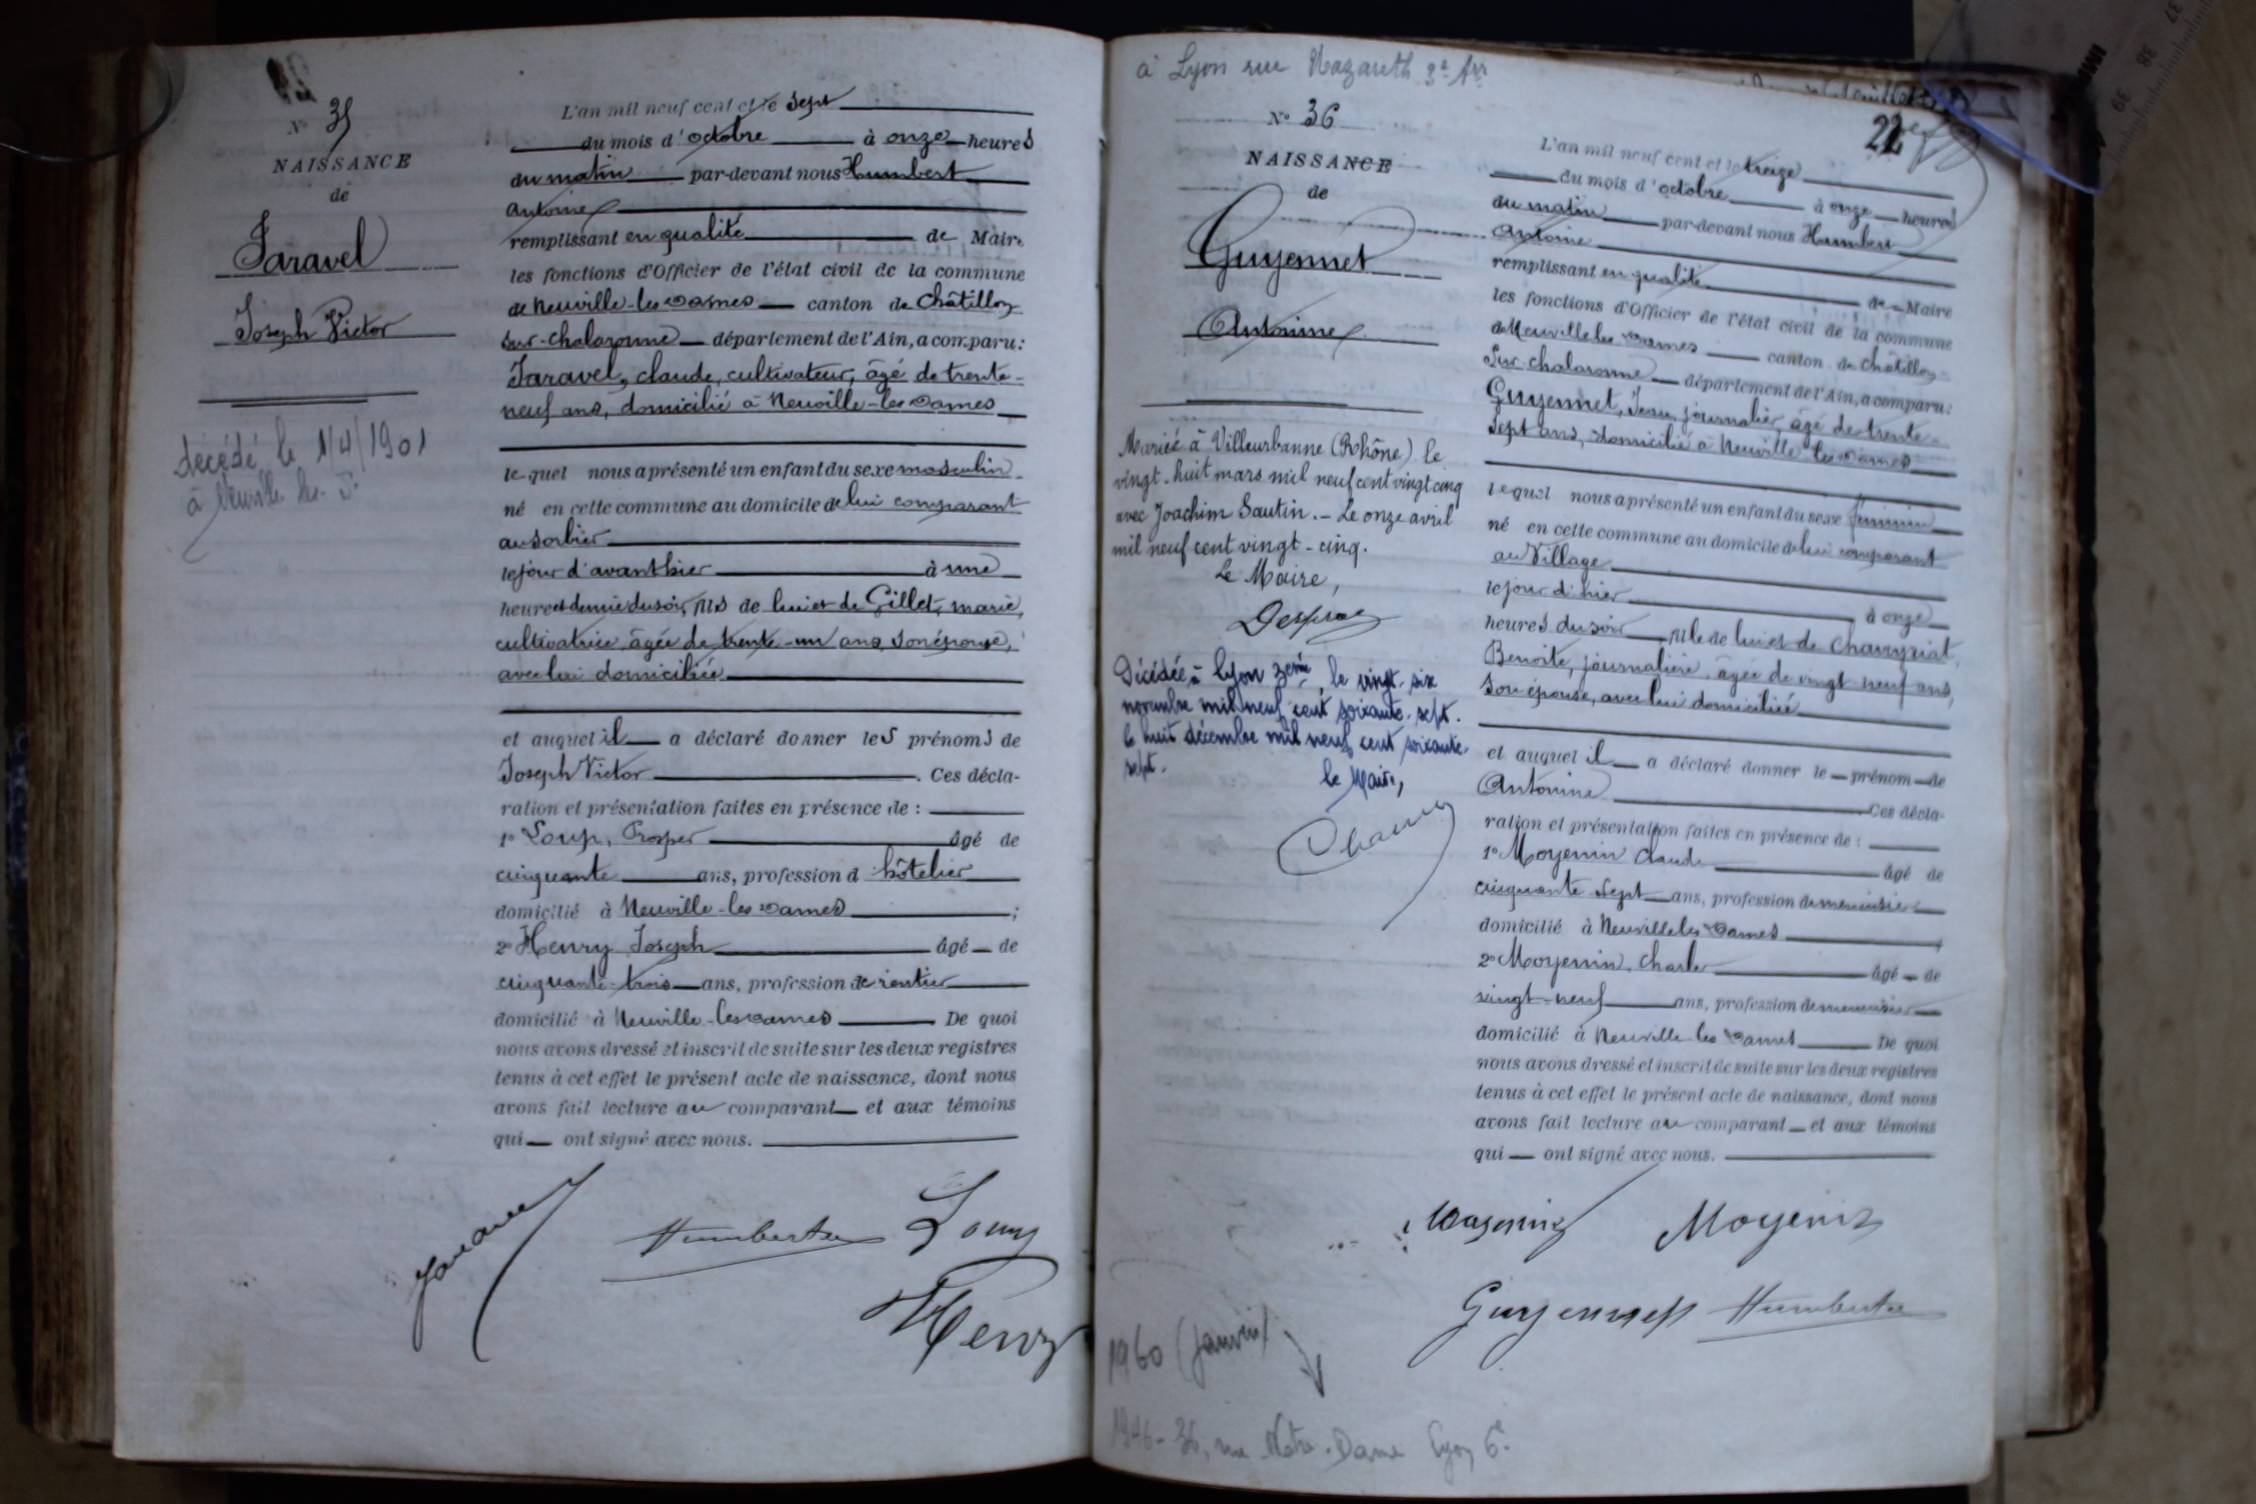 N° 35
NAISSANCE
de
Jaravel
Joseph Victor
décédé le 1/4/1901
à Neuville les D.
L'an mil neuf cent et le sept
du mois d'octobre à onze heures
du matin par-devant nous Humbert
Antoine
remplissant en qualité de Maire
les fonctions d'Officier de l'état civil de la commune
de Neuville-les-Dames canton de Châtillon
sur-chalaronne département de l'Ain, a comparu:
Jaravel, claude, cultivateur, âgé de trente-
neuf ans, domicilié à Neuville-les-Dames
lequel nous a présenté un enfant du sexe masculin
né en cette commune au domicile de lui comparant
au sorbier
le jour d'avant hier à une
heure et demie du soir, fils de lui et de Gillet, marie,
cultivatrice âgée de trente-un ans, son épouse,
avec lui domiciliée
et auquel il a déclaré donner les prénoms de
Joseph Victor. Ces décla-
ration et présentation faites en présence de :
1° Loup, Prosper âgé de
cinquante ans, profession d hôtelier
domicilié à Neuville-les-Dames ;
2° Henry Joseph âgé de
cinquante-trois ans, profession de rentier
domicilié à Neuville-les-Dames De quoi
nous avons dressé et inscrit de suite sur les deux registres
tenus à cet effet le présent acte de naissance, dont nous
avons fait lecture au comparant et aux témoins
qui ont signé avec nous.
Jaravel
Humbert
Loup
Henry
à Lyon rue Nazareth 3e Arr
N° 36
22
NAISSANCE
de
Guyennet
Antonine
Mariée à Villeurbanne (Rhône) le
vingt-huit mars mil neuf cent vingt cinq
avec Joachim Sautin. - Le onze avril
mil neuf cent vingt-cinq.
Le Maire,
Décédée à Lyon 3eme, le vingt-six
novembre mil neuf cent soixante-sept.
le huit décembre mil neuf cent soixante
sept.
le Maire,
L'an mil neuf cent et le treize
du mois d'octobre à onze heures
du matin par-devant nous Humbert
Antoine
remplissant en qualité de Maire
les fonctions d'Officier de l'état civil de la commune
de Neuville les Dames canton de Châtillon
sur-chalaronne département de l'Ain, a comparu:
Guyennet, Jean, journalier, âgé de trente-
sept ans, domicilié à Neuville les Dames
lequel nous a présenté un enfant du sexe féminin
né en cette commune au domicile de lui comparant
au Village
le jour d'hier à onze
heures du soir fille de lui et de Chavyriat,
Benoite, journalière, âgée de vingt-neuf ans,
son épouse, avec lui domiciliée
et auquel il a déclaré donner le prénom de
Antonine Ces décla-
ration et présentation faites en présence de :
1° Moyenin Claude âgé de
cinquante sept ans, profession de menuisier
domicilié à Neuville les Dames ,
2° Moyenin, Charles âgé de
vingt-neuf ans, profession de menuisier
domicilié à Neuville les Dames De quoi
nous avons dressé et inscrit de suite sur les deux registres
tenus à cet effet le présent acte de naissance, dont nous
avons fait lecture au comparant et aux témoins
qui ont signé avec nous.
Moyenin
Moyenin
Guyennet
Humbert
1960 (Janvier)
1946 - 36, rue Notre-Dame Lyon 6e